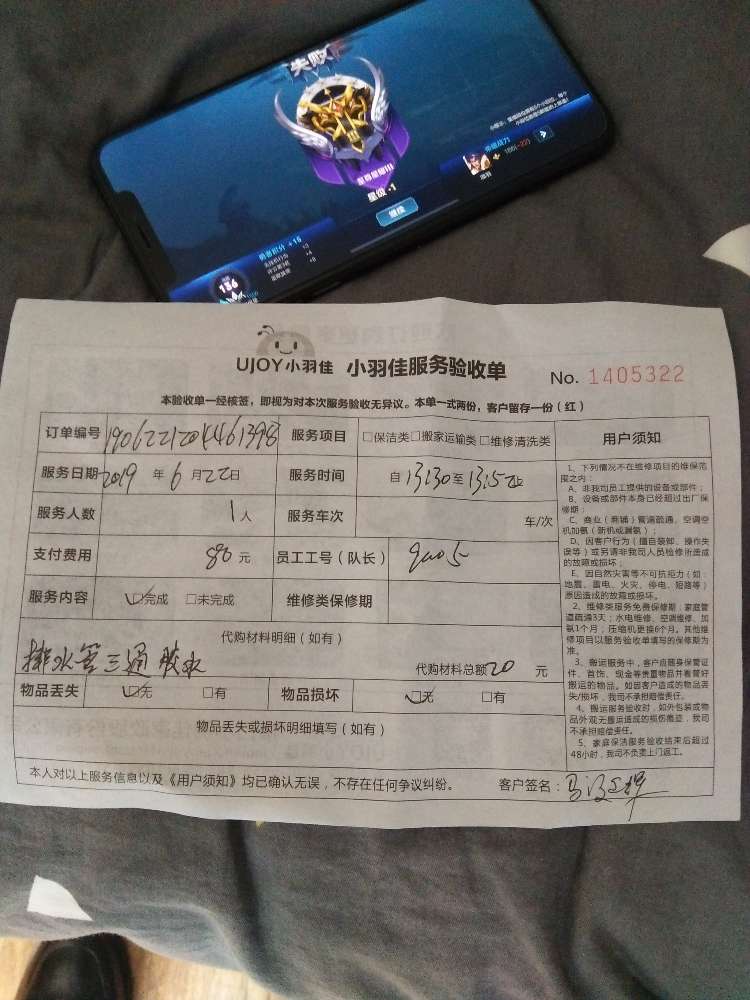 失败
至尊星耀III
星级 -1
继续
勇者积分 +16
186
UJOY小羽佳 小羽佳服务验收单
No. 1405322
本验收单一经核签，即视为对本次服务验收无异议。本单一式两份，客户留存一份（红）
订单编号 服务项目 □保洁类□搬家运输类□维修清洗类 用户须知
服务日期 2019 年 6 月 22 日 服务时间 自 13:30 至
服务人数 1 人 服务车次 车/次
支付费用 元 员工工号（队长）
服务内容 □完成 □未完成 维修类保修期
代购材料明细（如有）
排水管三通 胶水 代购材料总额 20 元
物品丢失 □无 □有 物品损坏 □无 □有
物品丢失或损坏明细填写（如有）
本人对以上服务信息以及《用户须知》均已确认无误，不存在任何争议纠纷。 客户签名：
1、下列情况不在维修项目的维保范
围之内：
A、非我司员工提供的设备或部件；
B、设备或部件本身已经超过出厂保
修期；
C、商业（商铺）管道疏通、空调空
机加氨（新机或漏氨）；
D、因客户行为（擅自装卸、操作失
误等）或另请非我司人员检修所造成
的故障或损坏；
E、因自然灾害等不可抗拒力（如：
地震、雷电、火灾、停电、短路等）
原因造成的故障或损坏。
2、维修类服务免费保修期：家庭管
道疏通3天；水电维修、空调维修、加
氨1个月，压缩机更换6个月。其他维
修项目以服务验收单填写的保修期为
准。
3、搬运服务中，客户应随身保管证
件、首饰、现金等贵重物品并看管好
搬运的物品。如因客户造成的物品丢
失/损坏，我司不承担赔偿责任。
4、搬运服务验收时，如外包装或物
品外观无搬运造成的损伤痕迹，我司
不承担赔偿责任。
5、家庭保洁服务验收结束后超过
48小时，我司不负责上门返工。